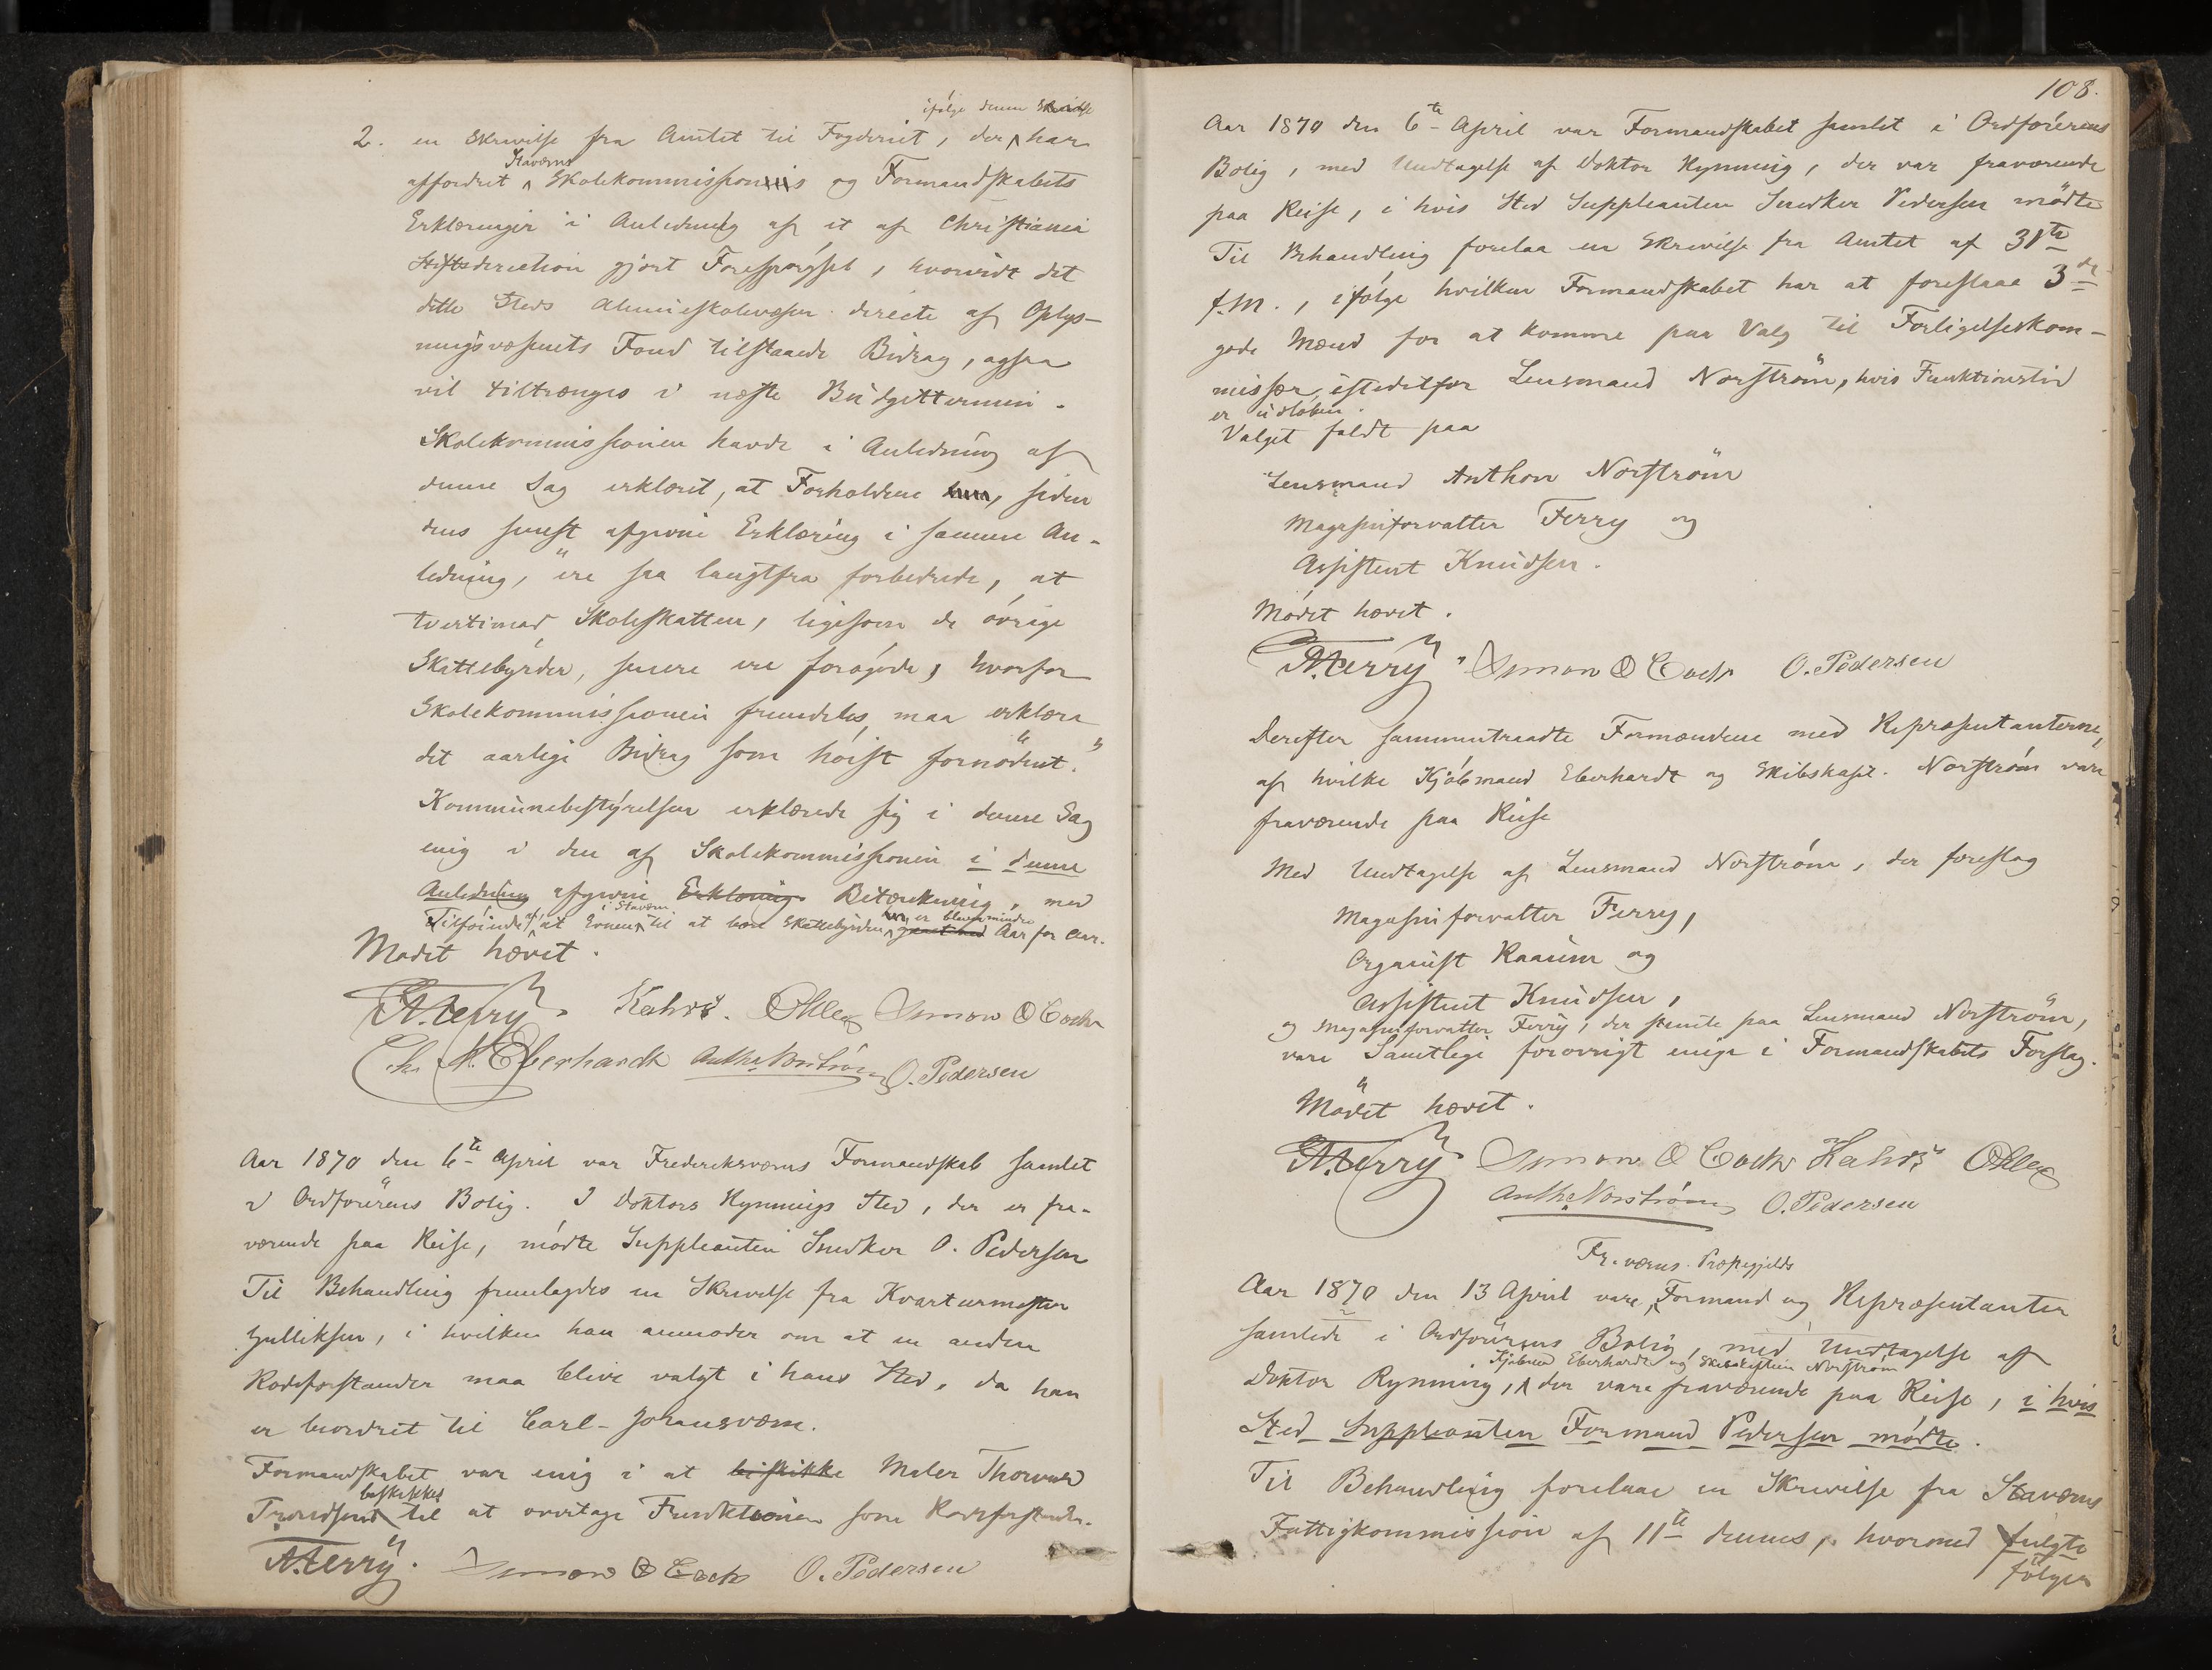 ifølge denne Skrivelse
2. en Skrivelse fra Amtet til Fogderiet, der har
Staværns
affordret Skolekommissionens og Formandskabets
Erklæringer i Anledning af et af Christiania
Stiftsdirection gjort Forespørgsel, hvorvidt det
dette Steds Almueskolevæsen directe af Oplys-
ningsvæsenets Fond tilstaaede Bidrag, ogsaa
vil tiltrænges i næste Budgettermin.
Skolekommissionen havde i Anledning af
denne Sag erklæret, at Forholdene her, siden
dens senest afgivne Erklæring i samme An-
ledning, "ere saa langtfra forbedrede, at
tvertimod Skoleskatten, ligesom de øvrige
Skattebyrder, senere ere forøgede, hvorfor
Skolekommissionen fremdeles maa erklære
det aarlige Bidrag som høist fornødent."
Kommunebestyrelsen erklærede sig i denne Sag
enig i den af Skolekommissionen i denne
Anledning afgivne Erklæring Betænkning, med
i Stavern er bleven mindre
Tilføiende af, at Evnen til at bære Skattebyrden Aar for Aar.
Mødet hævet.
A. Ferry. Kahrs. Simon O Coch
Chr. A. Eberhardt Anth. Norström O. Pedersen
Aar 1870 den 6te April var Frederiksværns Formandskab samlet
i Ordførerens Bolig. I Doktors Rynnings Sted, der er fra-
værende paa Reise, mødte Suppleanten Snedker O. Pedersen
Til Behandling fremlagdes en Skrivelse fra Kvartermester
Gulliksen, i hvilken han anmoder om at en anden
Rodeforstander maa blive valgt i hans Sted, da han
er beordret til Carl-Johansværn.
Formandskabet var enig i at beskikke Maler Thorvald
beskikkes
Trondsen til at overtage Funktionen som Rodeforstander.
A. Ferry. Simon O Coch O. Pedersen
108.
Aar 1870 den 6te April var Formandskabet samlet i Ordførerens
Bolig, med Undtagelse af Doktor Rynning, der var fraværende
paa Reise, i hvis Sted Suppleanten Snedker Pedersen mødte
Til Behandling forelaa en Skrivelse fra Amtet af 31te
f.M., ifølge hvilken Formandskabet har at foreslaae 3de
gode Mænd for at komme paa Valg til Forligelseskom-
missær istedetfor Lensmand Norström, hvis Funktionstid
er udløben.
Valget faldt paa
Lensmand Anthon Norström
Magasinforvalter Ferry og
Assistent Knudsen.
Mødet hævet.
A. Ferry Simon O Coch O. Pedersen
Derefter sammentraadte Formændene med Repræsentanterne,
af hvilke Kjøbmand Eberhardt og Skibskapt. Norström vare
fraværende paa Reise
Med Undtagelse af Lensmand Norström, der foreslog
Magasinforvalter Ferry,
Organist Raaum og
Assistent Knudsen,
og Magasinforvalter Ferry, der stemte paa Lensmand Norström,
vare Samtlige forøvrigt enige i Formandskabets Forslag.
Mødet hævet.
A. Ferry Simon O Coch Kahrs
Anth. Norström O. Pedersen
Fr.værns Præstegjelds
Aar 1870 den 13 April vare Formænd og Repræsentanter
samlede i Ordførerens Bolig, med Undtagelse af
Kjøbmd Eberhardt og Skibskaptein Norström
Doktor Rynning, der vare fraværende paa Reise, i hvis
Sted Suppleanten Formand Pedersen mødte.
Til Behandling forelaae en Skrivelse fra Staværns
Fattigkommission af 11te dennes, hvormed fulgte
følger